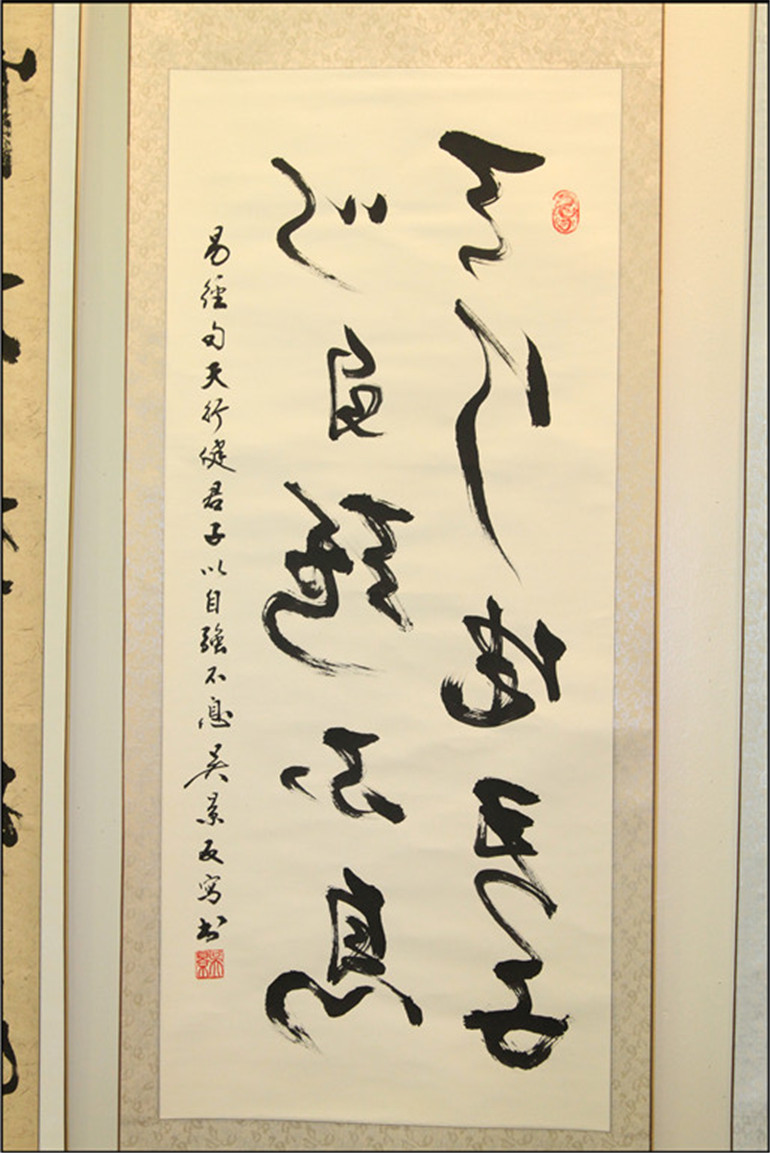 天行健君子
以自強不息
易經句天行健君子以自強不息吳景友寫書